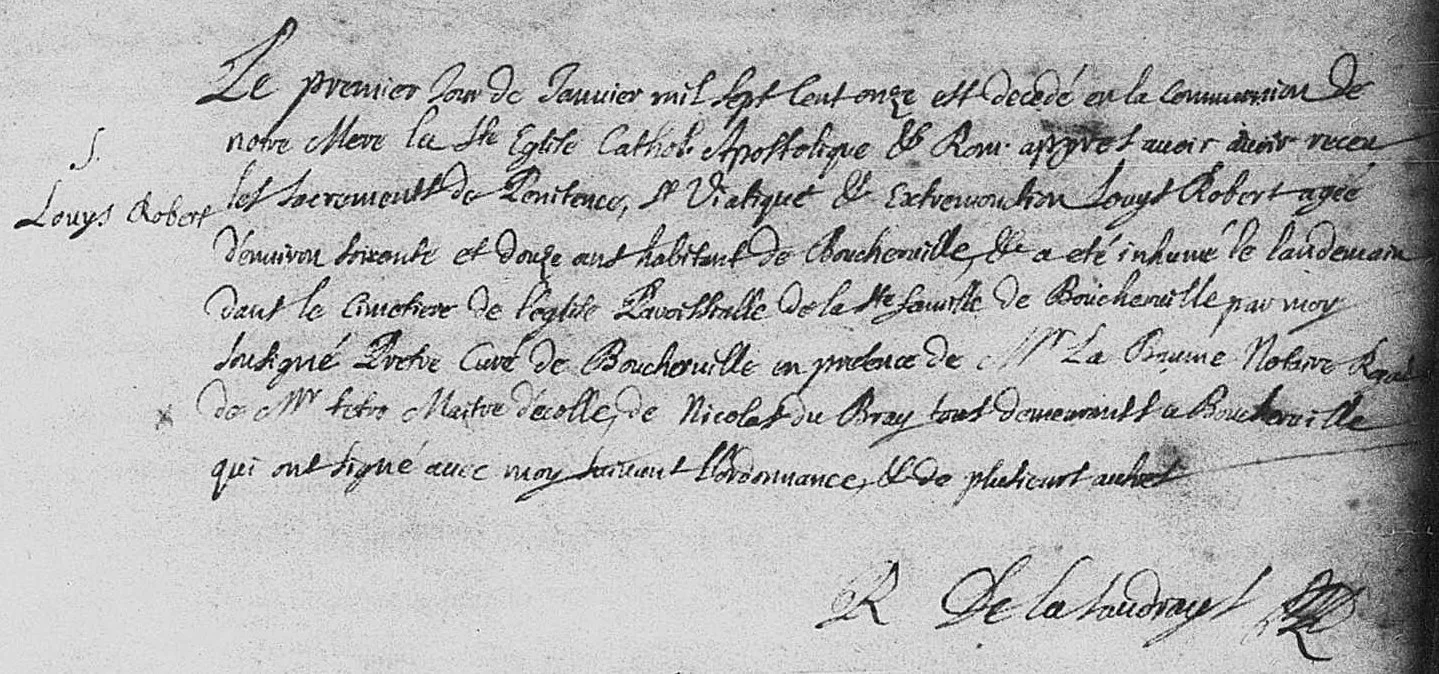 Le premier Jour de Janvier mil sept Cent onze est decedé en la Communion de
notre Mere la Ste Eglise Cathol. Apostolique & Rom. apprés avoir avoir receu
S.
Louys Robert
les sacrements de Penitence, St Viatique & Extremonction Louys Robert ageé
d'environ soixante et douze ans habitant de Boucherville, & a eté inhumé le landemain
dans le Cimetiere de l'eglise Paroissialle de la Ste famille de Boucherville par moy
sousigné Pretre Curé de Boucherville en presence de Mr La Baume Notaire Royal
de Mr Maitre d'ecolle, de Nicolas du Bray tous demeurants a Boucherville
qui ont signé avec moy suivant l'ordonnance, & de plusieurs autres
R De la Saudrays